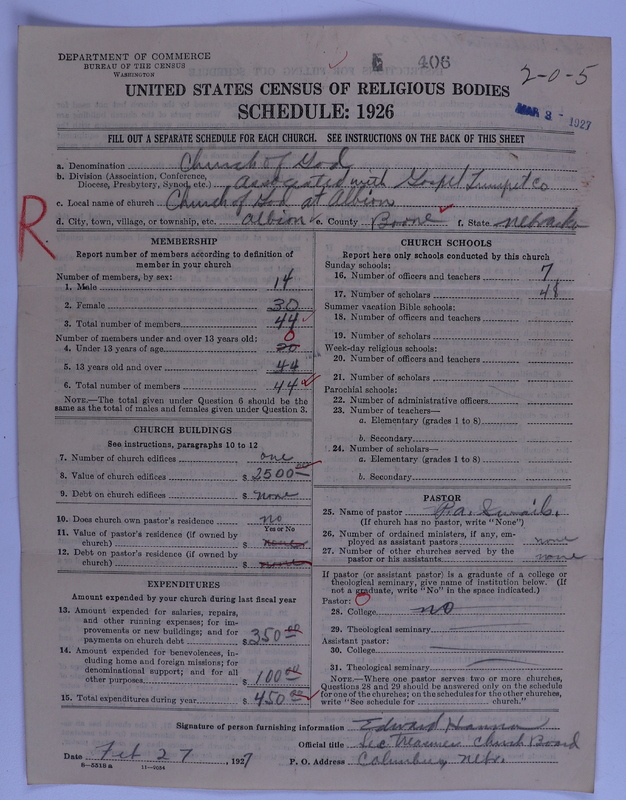 DEPARTMENT OF COMMERCE
BUREAU OF THE CENSUS
WASHINGTON
406
2-0-5
UNITED STATES CENSUS OF RELIGIOUS BODIES
SCHEDULE: 1926
MAR 3 - 1927
FILL OUT A SEPARATE SCHEDULE FOR EACH CHURCH. SEE INSTRUCTIONS ON THE BACK OF THIS SHEET
a. Denomination Church of God
b. Division (Association, Conference, Diocese, Presbytery, Synod, etc.) Associated with Gospel Trumpet Co
c. Local name of church Church of God at Albion
d. City, town, village, or township, etc. Albion e. County Boone f. State Nebraska
R
MEMBERSHIP
Report number of members according to definition of
member in your church
Number of members, by sex:
1. Male 14
2. Female 30
3. Total number of members 44
Number of members under and over 13 years old:
4. Under 13 years of age 20 0
5. 13 years old and over 44
6. Total number of members 44
NOTE.—The total given under Question 6 should be the
same as the total of males and females given under Question 3.
CHURCH BUILDINGS
See instructions, paragraphs 10 to 12
7. Number of church edifices one
8. Value of church edifices $ 2500
9. Debt on church edifices $ none
10. Does church own pastor's residence no
Yes or No
11. Value of pastor's residence (if owned by
church) $ none
12. Debt on pastor's residence (if owned by
church) $ none
EXPENDITURES
Amount expended by your church during last fiscal year
13. Amount expended for salaries, repairs,
and other running expenses; for im-
provements or new buildings; and for
payments on church debt $ 350.00
14. Amount expended for benevolences, in-
cluding home and foreign missions; for
denominational support; and for all
other purposes $ 100.00
15. Total expenditures during year $ 450.00
CHURCH SCHOOLS
Report here only schools conducted by this church
Sunday schools:
16. Number of officers and teachers 7
17. Number of scholars 48
Summer vacation Bible schools:
18. Number of officers and teachers
19. Number of scholars
Week-day religious schools:
20. Number of officers and teachers
21. Number of scholars
Parochial schools:
22. Number of administrative officers
23. Number of teachers—
a. Elementary (grades 1 to 8)
b. Secondary
24. Number of scholars—
a. Elementary (grades 1 to 8)
b. Secondary
PASTOR
25. Name of pastor
(If church has no pastor, write "None")
26. Number of ordained ministers, if any, em-
ployed as assistant pastors none
27. Number of other churches served by the
pastor or his assistants none
If pastor (or assistant pastor) is a graduate of a college or
theological seminary, give name of institution below. (If
not a graduate, write "No" in the space indicated.)
Pastor:
28. College no
29. Theological seminary
Assistant pastor:
30. College
31. Theological seminary
NOTE.—Where one pastor serves two or more churches,
Questions 28 and 29 should be answered only on the schedule
for one of the churches; on the schedules for the other churches,
write "See schedule for church."
Signature of person furnishing information Edward
Official title Sec. Church Board
Date Feb 27, 1927 P. O. Address Columbus Nebr.
8-5518 a 11-9084